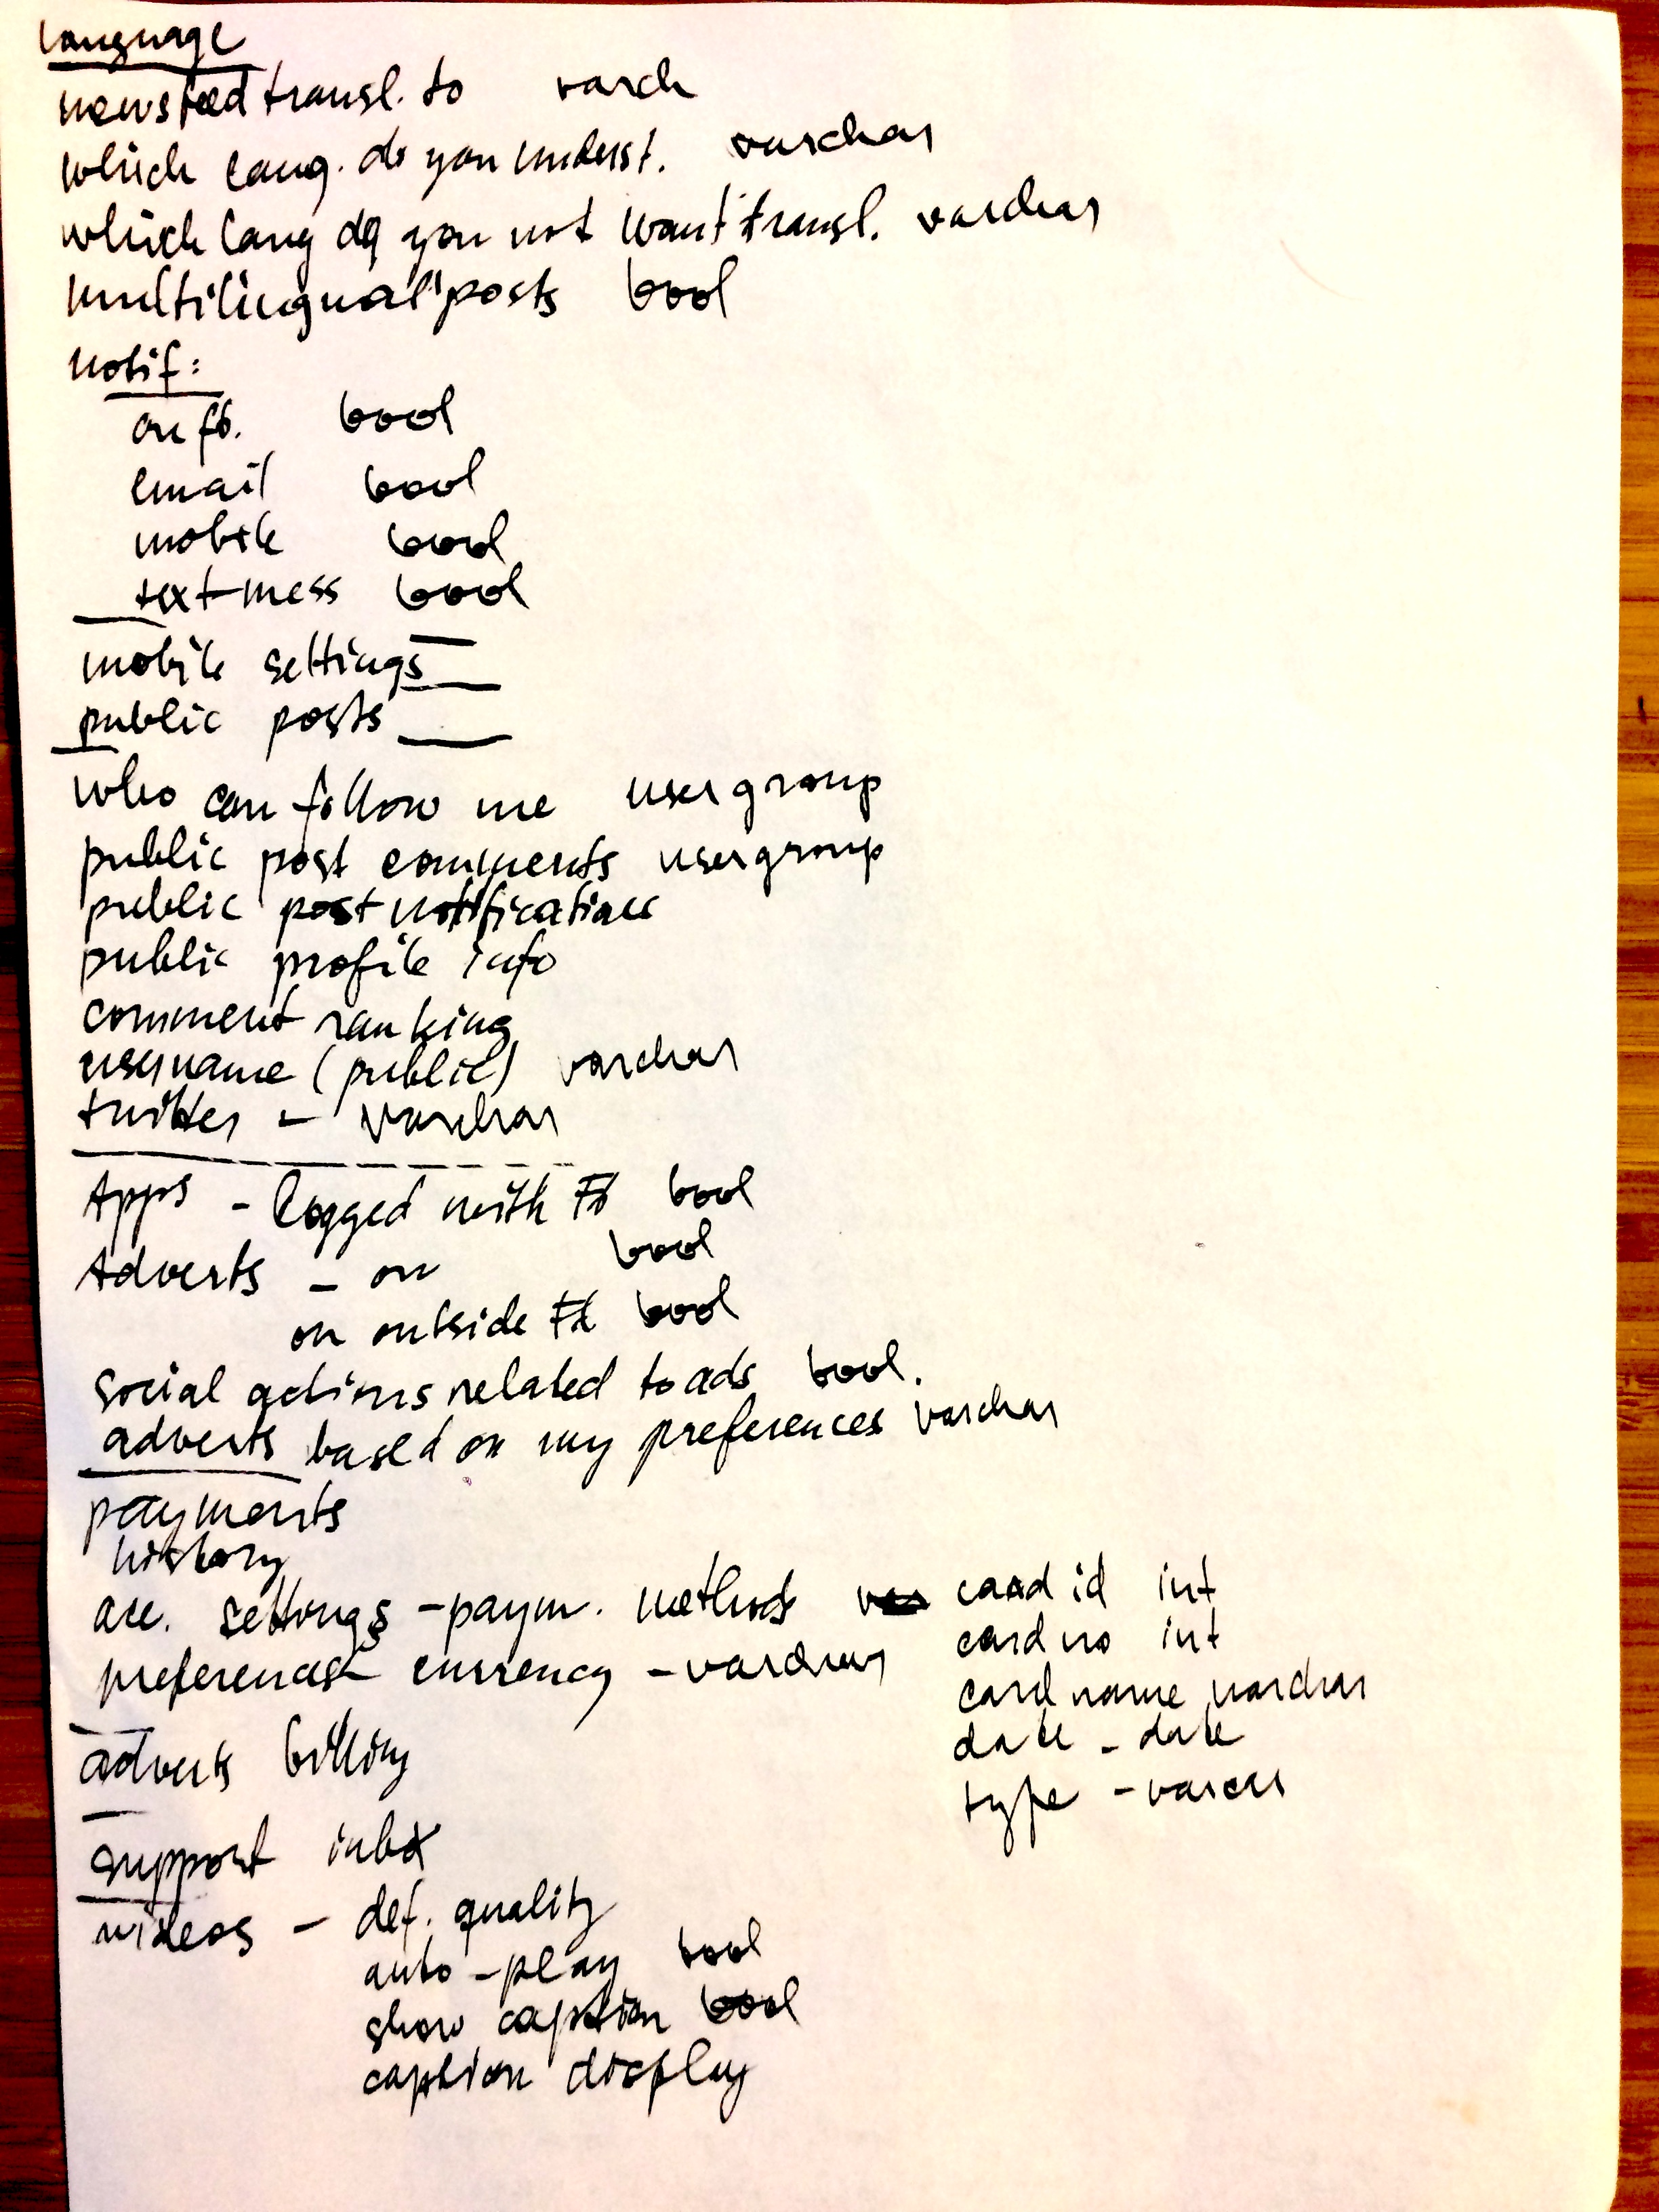 language
newsfeed transl. to varch
which lang. do you underst. varchar
which lang do you not want transl. varchar
multilingual posts bool
notif:
on fb. bool
email bool
mobile bool
text mess bool
mobile settings
public posts
who can follow me usergroup
public post comments usergroup
public post notifications
public profile info
comment ranking
username (public) varchar
twitter - varchar
Apps - logged with Fb bool
Adverts - on bool
on outside Fb bool
social actions related to ads bool.
adverts based on my preferences varchar
payments
history
acc. settings - paym. methods card id int
card no int
preferences currency - varchar
card name varchar
date - date
adverts billing
type - varchar
support inbox
videos - def. quality
auto-play bool
show caption bool
caption display